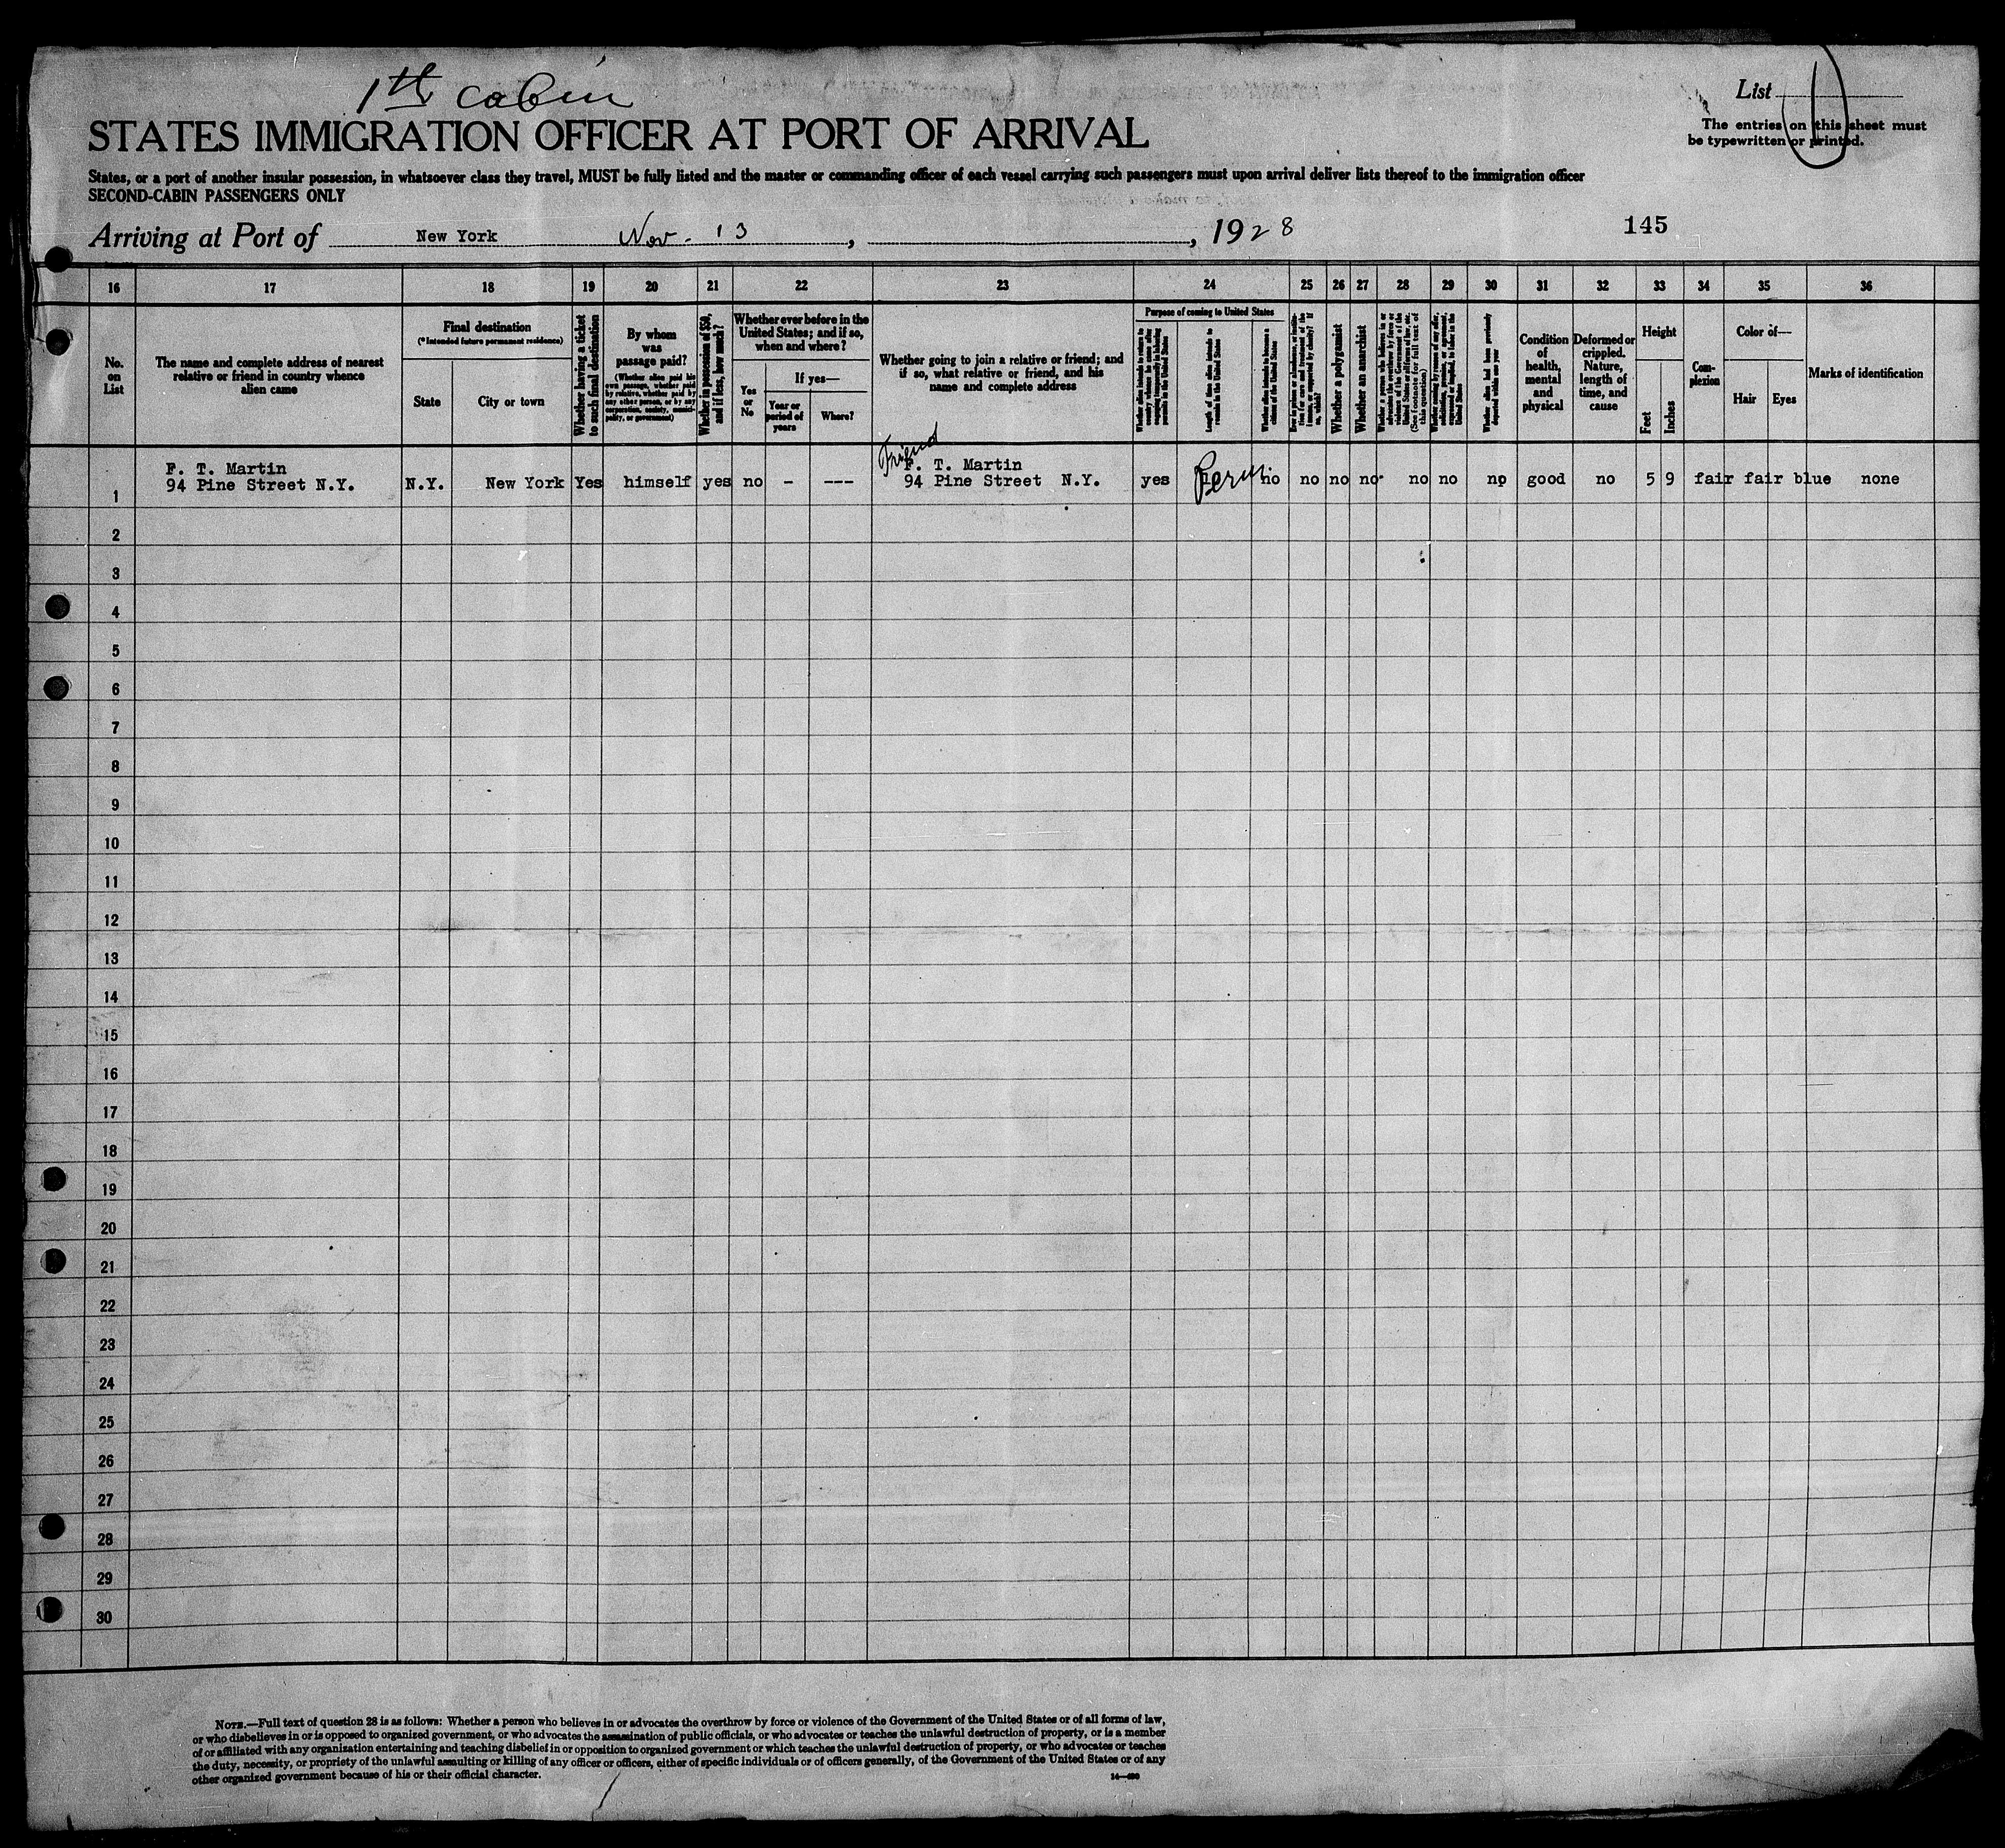 1th cabin
List 1
The entries on this sheet must
be typewritten or printed.
STATES IMMIGRATION OFFICER AT PORT OF ARRIVAL
States, or a port of another insular possession, in whatsoever class they travel, MUST be fully listed and the master or commanding officer of each vessel carrying such passengers must upon arrival deliver lists thereof to the immigration officer
SECOND-CABIN PASSENGERS ONLY
Arriving at Port of New York Nov. 13, , 1928
145
16 17 18 19 20 21 22 23 24 25 26 27 28 29 30 31 32 33 34 35 36
No.
on
List
The name and complete address of nearest
relative or friend in country whence
alien came
Final destination
(*Intended future permanent residence)
State
City or town
Whether having a ticket
to such final destination
By whom
was
passage paid?
(Whether alien paid his
own passage, whether paid
by relative, whether paid by
any other person, or by any
corporation, society, munici-
pality, or government)
Whether in possession of $50,
and if less, how much?
Whether ever before in the
United States; and if so,
when and where?
Yes
or
No
If yes—
Year or
period of
years
Where?
Whether going to join a relative or friend; and
if so, what relative or friend, and his
name and complete address
Purpose of coming to United States
Whether alien intends to return to
country whence he came after
engaging temporarily in laboring
pursuits in the United States
Length of time alien intends to
remain in the United States
Whether alien intends to become a
citizen of the United States
Whether a polygamist
Whether an anarchist
Whether a person who believes in or
advocates the overthrow by force or
violence of the Government of the
United States or all forms of law, etc.
(See footnote for full text of
this question)
Whether alien had been previously
deported within one year
Condition
of
health,
mental
and
physical
Deformed or
crippled.
Nature,
length of
time, and
cause
Height
Feet
Inches
Com-
plexion
Color of—
Hair
Eyes
Marks of identification
Friend
F. T. Martin F. T. Martin
1 94 Pine Street N.Y. N.Y. New York Yes himself yes no - --- 94 Pine Street N.Y. yes Perm no no no no no no no good no 5 9 fair fair blue none
2
3
4
5
6
7
8
9
10
11
12
13
14
15
16
17
18
19
20
21
22
23
24
25
26
27
28
29
30
NOTE.—Full text of question 28 is as follows: Whether a person who believes in or advocates the overthrow by force or violence of the Government of the United States or of all forms of law,
or who disbelieves in or is opposed to organized government, or who advocates the assassination of public officials, or who advocates or teaches the unlawful destruction of property, or is a member
of or affiliated with any organization entertaining and teaching disbelief in or opposition to organized government or which teaches the unlawful destruction of property, or who advocates or teaches
the duty, necessity, or propriety of the unlawful assaulting or killing of any officer or officers, either of specific individuals or of officers generally, of the Government of the United States or of any
other organized government because of his or their official character.